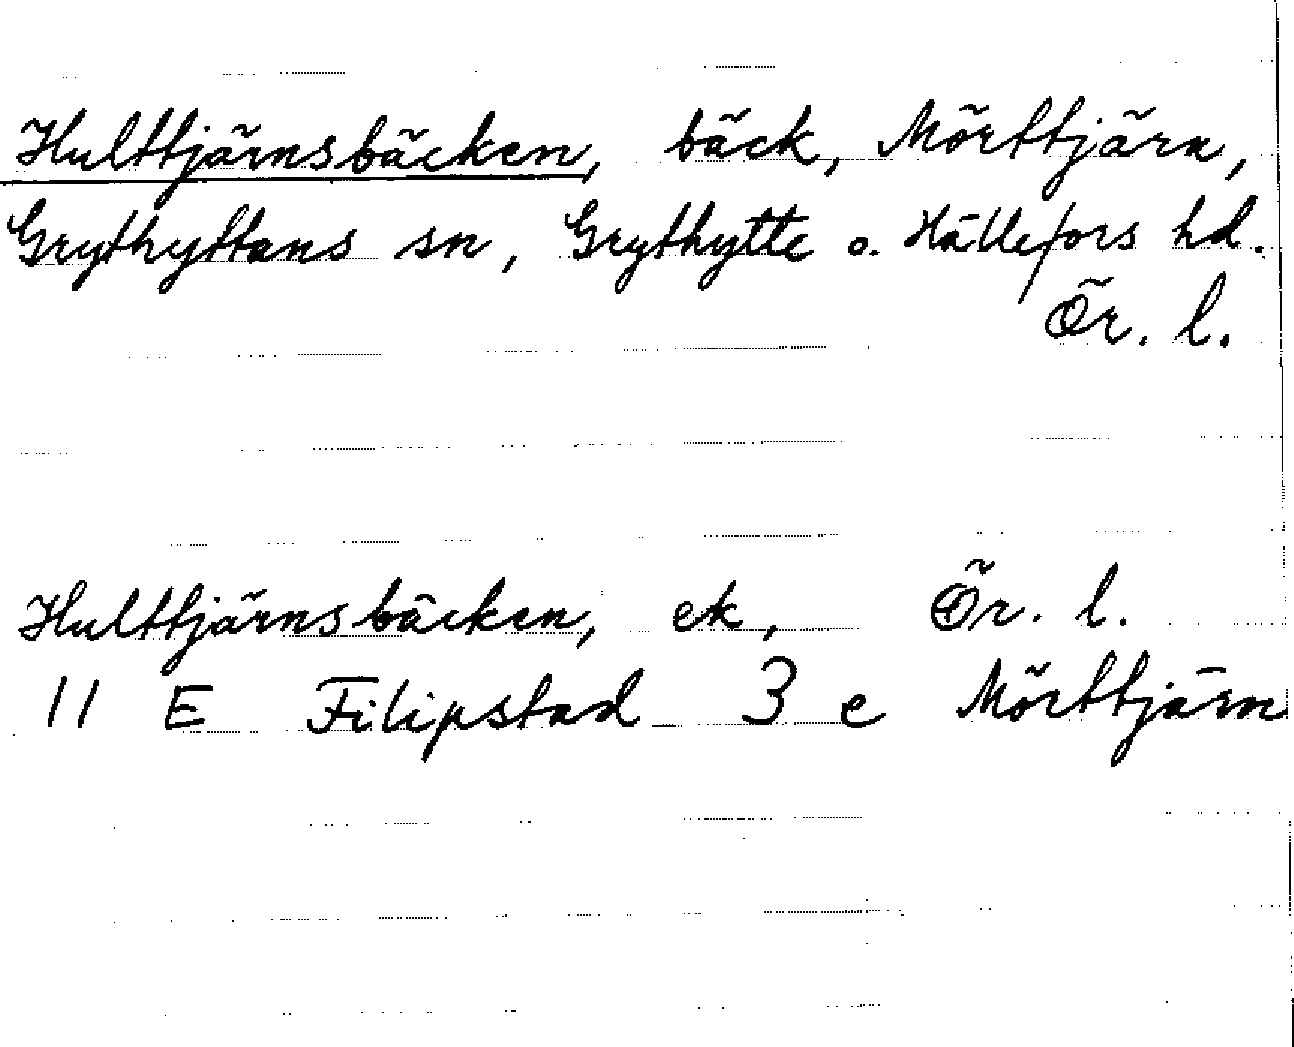 Hulttjärnsbäcken, bäck, Mörttjärn,
Grythyttans sn, Grythytte o. Hällefors hd.
Ör. l.
Hulttjärnsbäcken, ek, Ör. l.
11 E Filipstad 3 e Mörttjärn